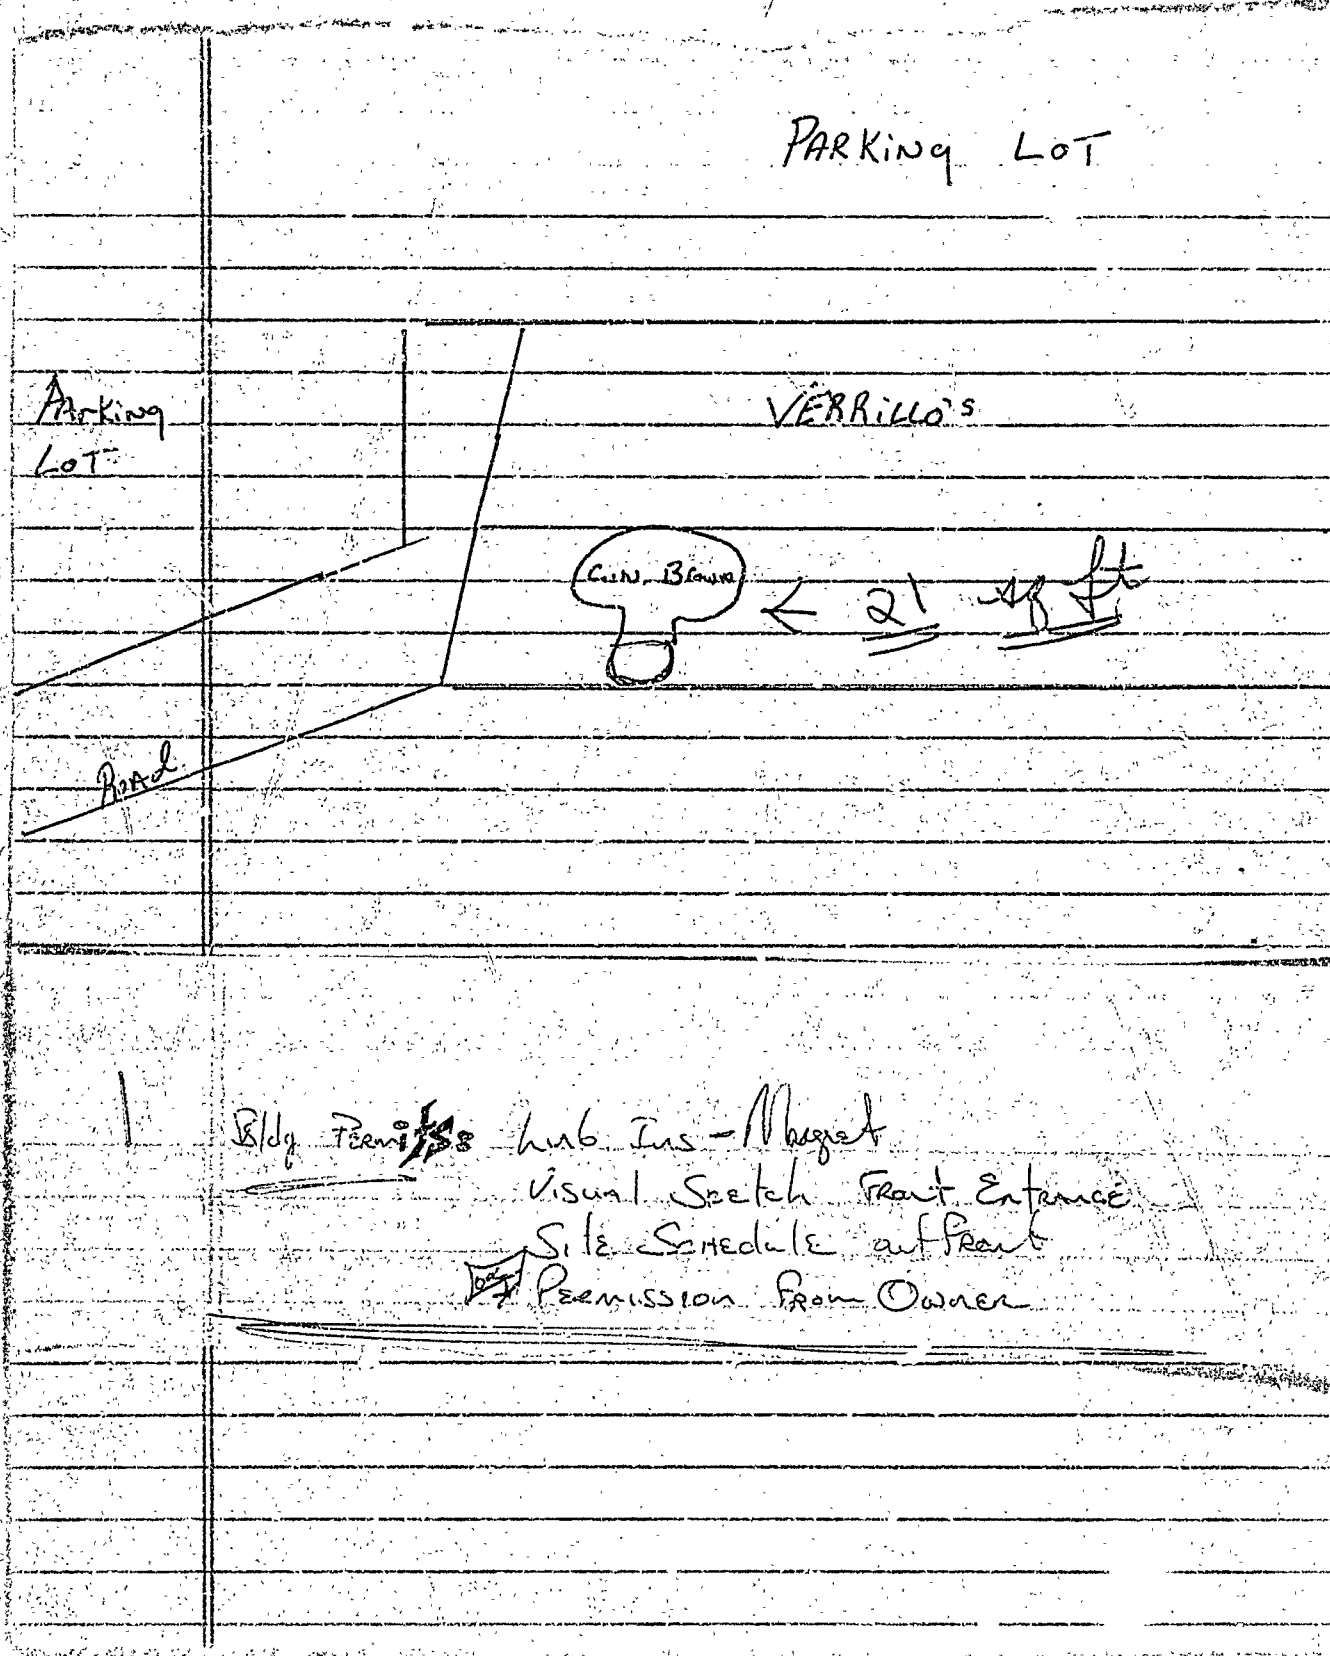 PARKING LOT
PARKING
LOT
VERRILLO'S
Brown
← 21 sq ft
ROAD
Bldg Permits: Ins - Magnet
Visual Scetch Front Entrance
Site Schedule out Front
Permission From Owner